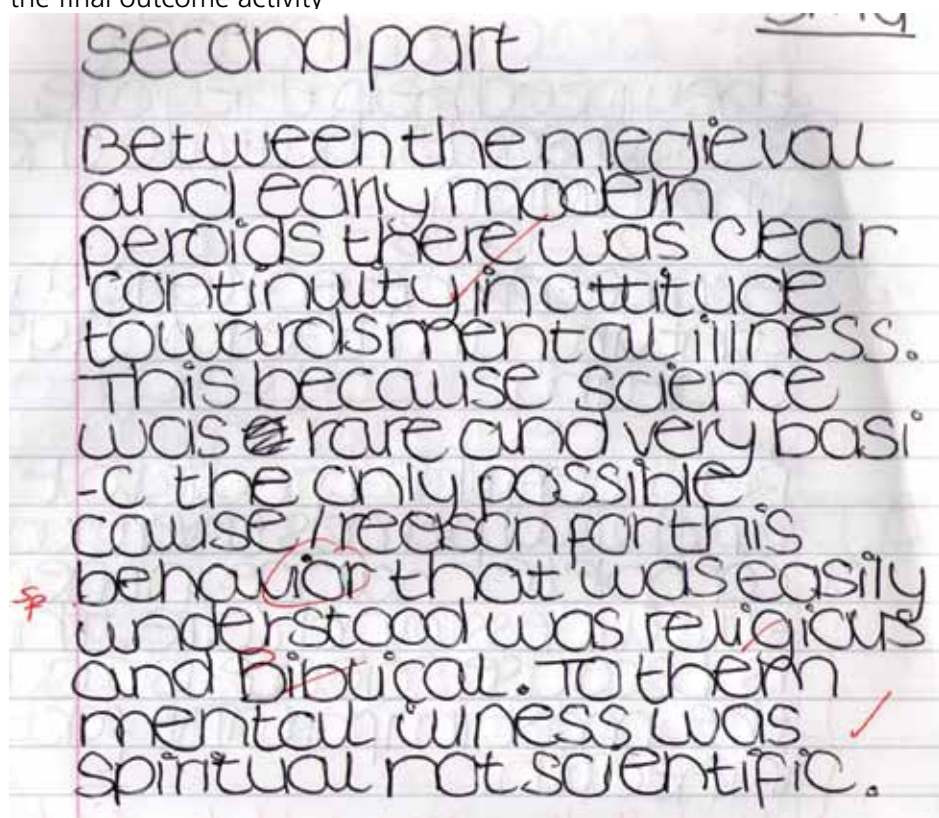 the final outcome activity
second part
Between the medieval
and early modern
peroids there was clear
continuity in attitude
towards mental illness.
This because science
was rare and very basi
-c the only possible
cause/reason for this
behavior that was easily
sp
understood was religious
and Biblical. To them
mental illness was
spiritual not scientific.